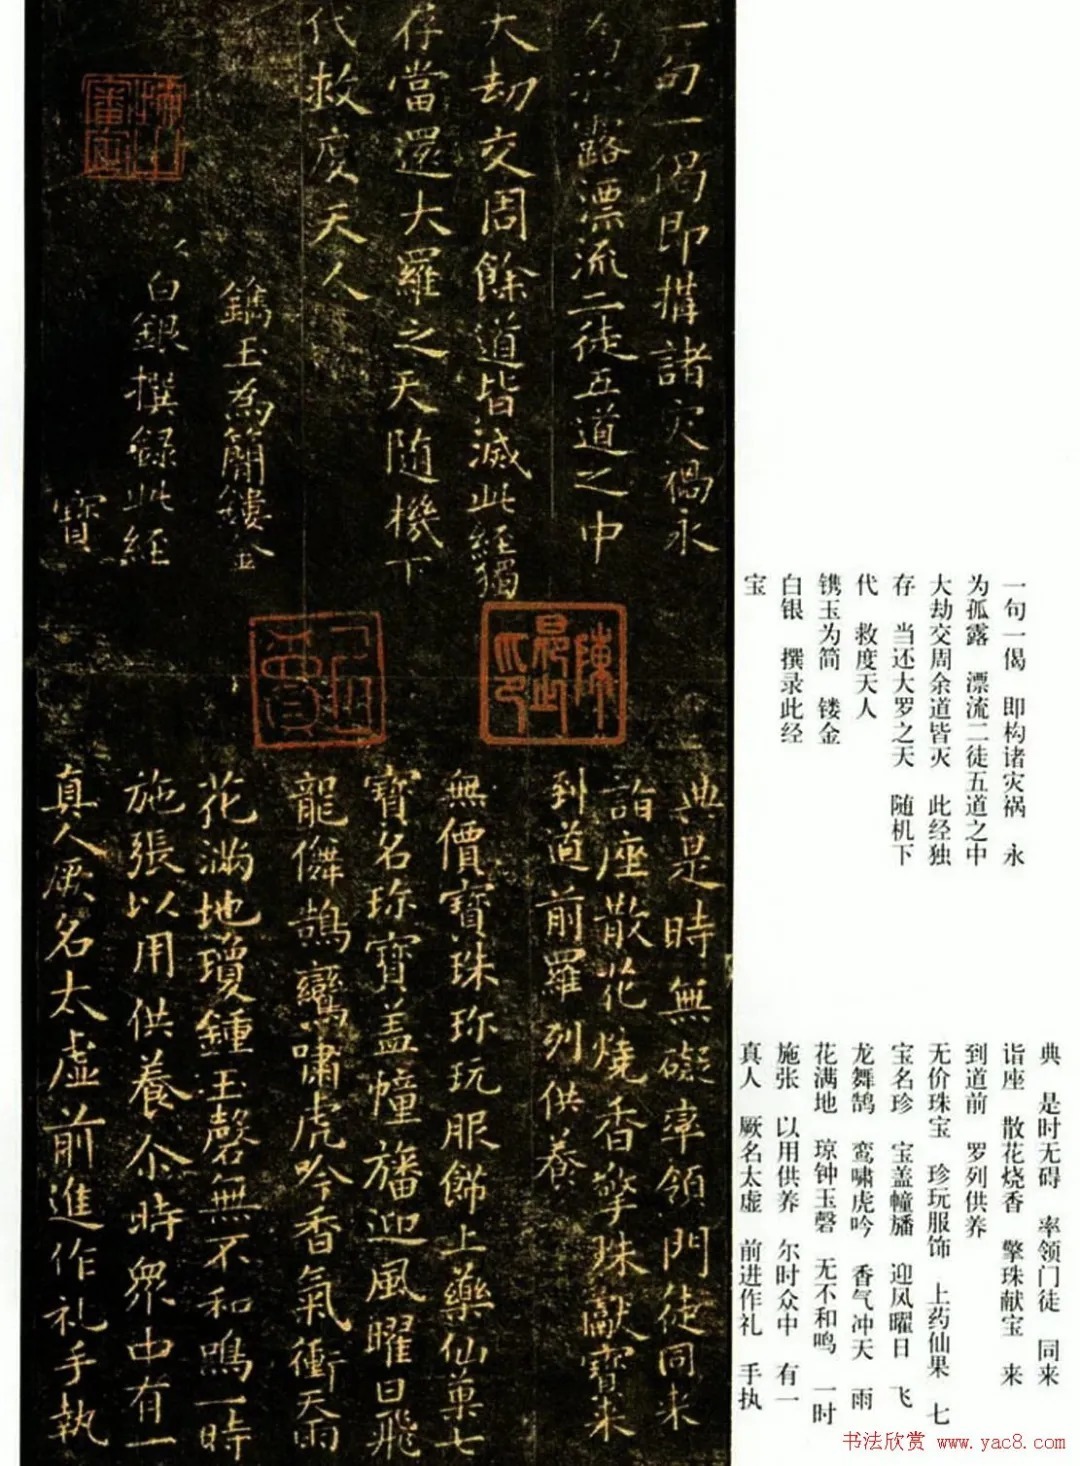 一句一偈即構諸灾禍永
為孤露漂流二徒五道之中
大劫交周餘道皆滅此經獨
存當還大羅之天随機下
代救度天人
鐫玉為簡鏤金
白銀撰録此經
寳
典是時無礙率領門徒同来
詣座散花燒香擎珠獻寳来
到道前羅列供養
無價寳珠珎玩服飾上藥仙菓七
寳名珎寳盖幢旛迎風曜日飛
龍儛鵠鸞嘯虎吟香氣衝天雨
花滿地瓊鍾玉磬無不和鳴一時
施張以用供養尒時衆中有一
真人厥名太虚前進作礼手執
陳
一句一偈 即构诸灾祸 永
为孤露 漂流二徒五道之中
大劫交周余道皆灭 此经独
存 当还大罗之天 随机下
代 救度天人
镌玉为简 镂金
白银 撰录此经
宝
典 是时无碍 率领门徒 同来
诣座 散花烧香 擎珠献宝 来
到道前 罗列供养
无价珠宝 珍玩服饰 上药仙果 七
宝名珍 宝盖幢旛 迎风曜日 飞
龙舞鹄 鸾啸虎吟 香气冲天 雨
花满地 琼钟玉磬 无不和鸣 一时
施张 以用供养 尔时众中 有一
真人 厥名太虚 前进作礼 手执
书法欣赏 www.yac8.com